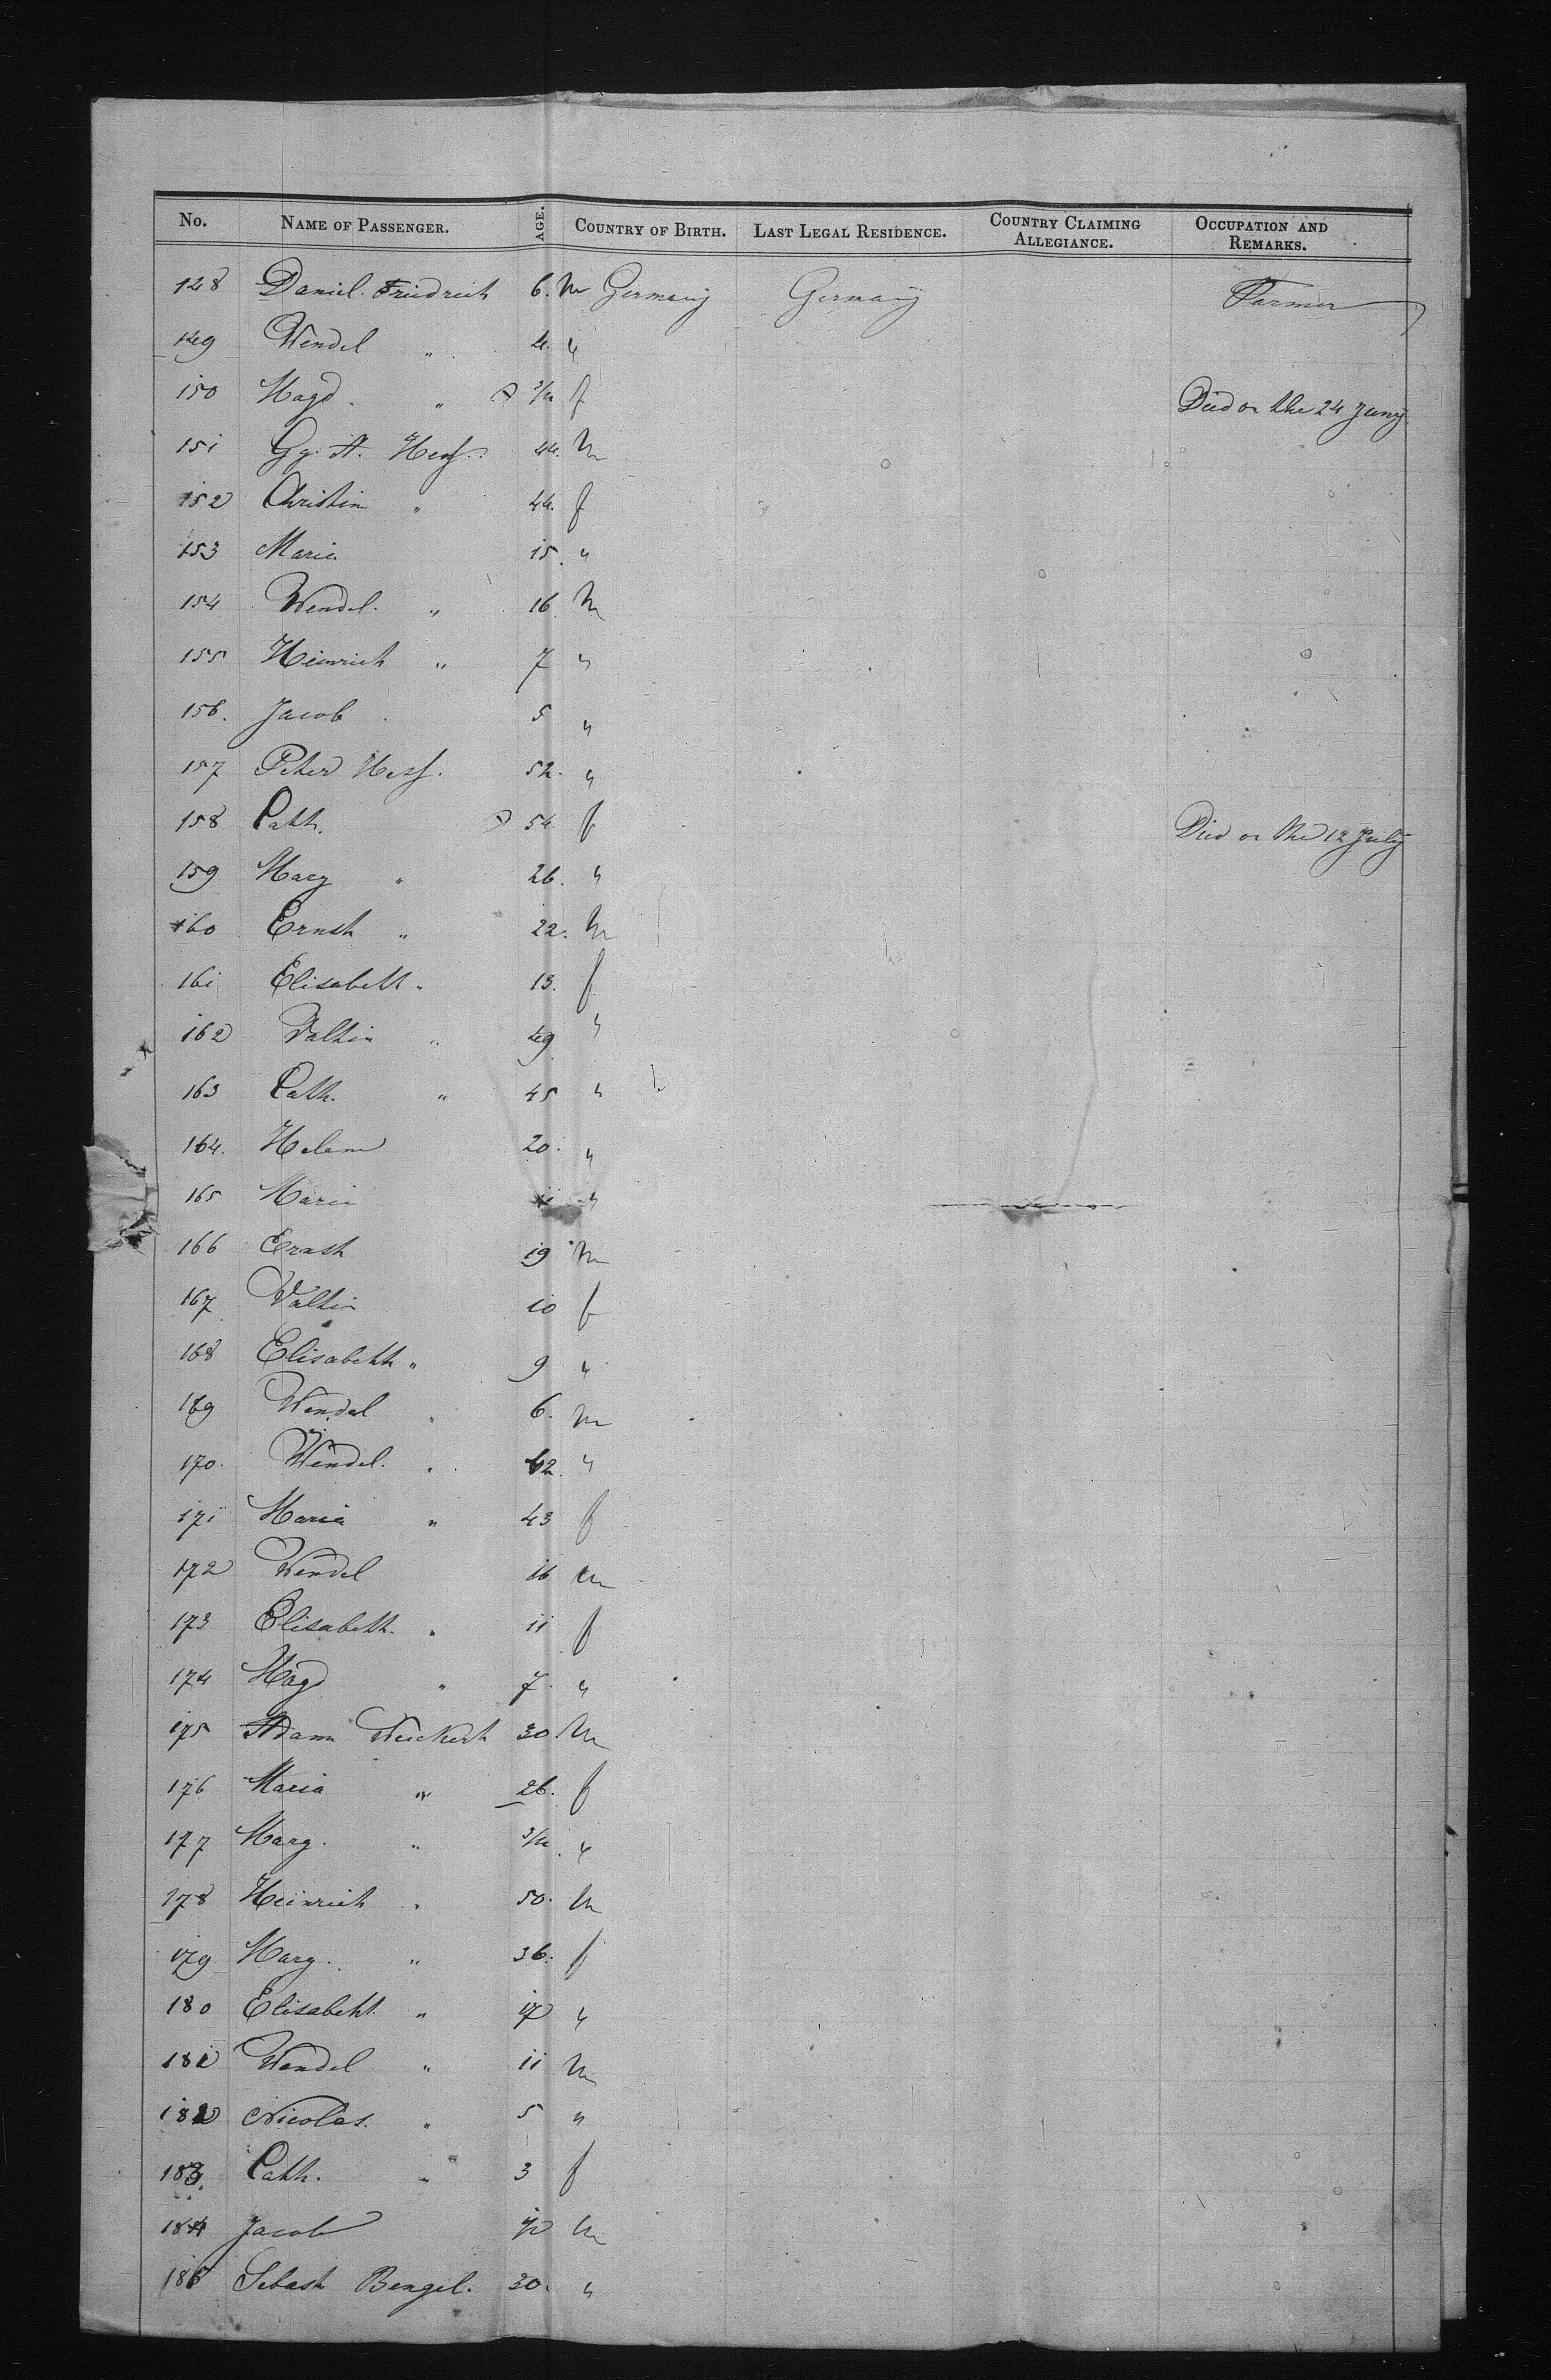 No. NAME OF PASSENGER. AGE. COUNTRY OF BIRTH. LAST LEGAL RESIDENCE. COUNTRY CLAIMING ALLEGIANCE. OCCUPATION AND REMARKS.
128 Daniel Friedrich 6. m Germany Germany Farmer
149 Wendel " 4. "
150 Magd. " f Died on the 24 Juny.
151 Gg. A. Hess. 44. m
152 Christin " 44. f
153 Maria 15. "
154 Wendel. " 16. m
155 Heinrich " 7 "
156. Jacob 5 "
157 Peter Hess. 52. "
158 Cath. 54. f Died on the 12 July
159 Marg " 26. "
160 Ernst " 22. m
161 Elisabeth " 13. f
162 Valtin " 49 "
163 Cath. " 45 "
164. Helene 20. "
165 Maria "
166 Ernst 19 m
167 Valtin 10 f
168 Elisabeth " 9 "
169 Wendel " 6. m
170. Wendel. " 42. "
171 Maria " 43 f
172 Wendel 16 m
173 Elisabeth. " 11 f
174 Magd " 7. "
175 Adam Weickert 30. m
176 Maria " 26. f
177 Marg. " "
178 Heinrich " 50. m
179 Marg. " 36. f
180 Elisabeht " 17 "
181 Wendel " 11 m
182 Nicolas. " 5 "
183. Cath. " 3 f
184 Jacob m
185 Sebast Bengel. 30. "